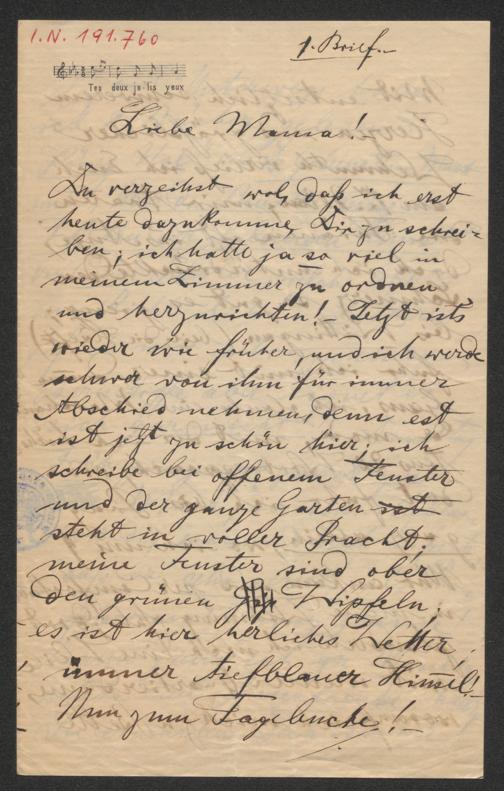 I.N. 191.760
1. Brief.-
Tes deux jo-lis yeux
Liebe Mama!
Du verzeihst wol, daß ich erst
heute dazukomme, Dir zu schrei=
ben; ich hatte ja so viel in
meinem Zimmer zu ordnen
und herzurichten! - Jetzt ist's
wieder wie früher, und ich werde
schwer von ihm für immer
Abschied nehmen, denn est
ist jetzt zu schön hier; ich
schreibe bei offenem Fenster
und der ganze Garten ist
steht in voller Pracht;
meine Fenster sind ober
den grünen Wipfeln;
es ist hier herliches Wetter,
immer tiefblauer Himel!
Nun zum Tagebuche!-